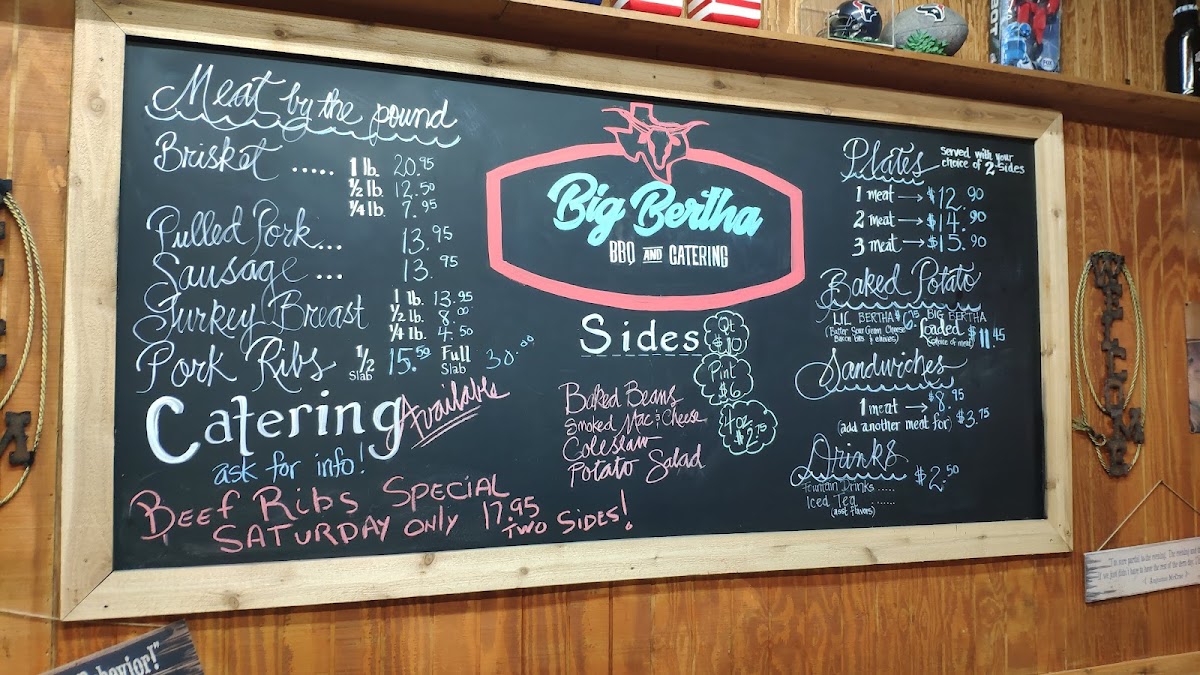 Meat by the pound
Brisket ..... 1 lb. 20.95
½ lb. 12.50
¼ lb. 7.95
Pulled Pork... 13.95
Sausage ... 13.95
Turkey Breast 1 lb. 13.95
½ lb. 8.00
¼ lb. 4.50
Pork Ribs ½ Slab 15.50 Full Slab 30.00
Catering Available
ask for info!
BEEF RIBS SPECIAL
SATURDAY ONLY 17.95
TWO SIDES!
Big Bertha
BBQ AND CATERING
Sides
Qt $10
Pint $6
4oz $2.75
Baked Beans
Smoked Mac & Cheese
Coleslaw
Potato Salad
Plates served with your choice of 2-Sides
1 meat → $12.90
2 meat → $14.90
3 meat → $15.90
Baked Potato
LIL BERTHA $6.75
Butter Sour Cream Cheese
Bacon bits & chives
BIG BERTHA
Loaded $11.45
(choice of meat)
Sandwiches
1 meat → $8.95
(add another meat for) $3.75
Drinks $2.50
Fountain Drinks .....
Iced Tea .....
(asst flavors)
WELCOME
Behavior!"